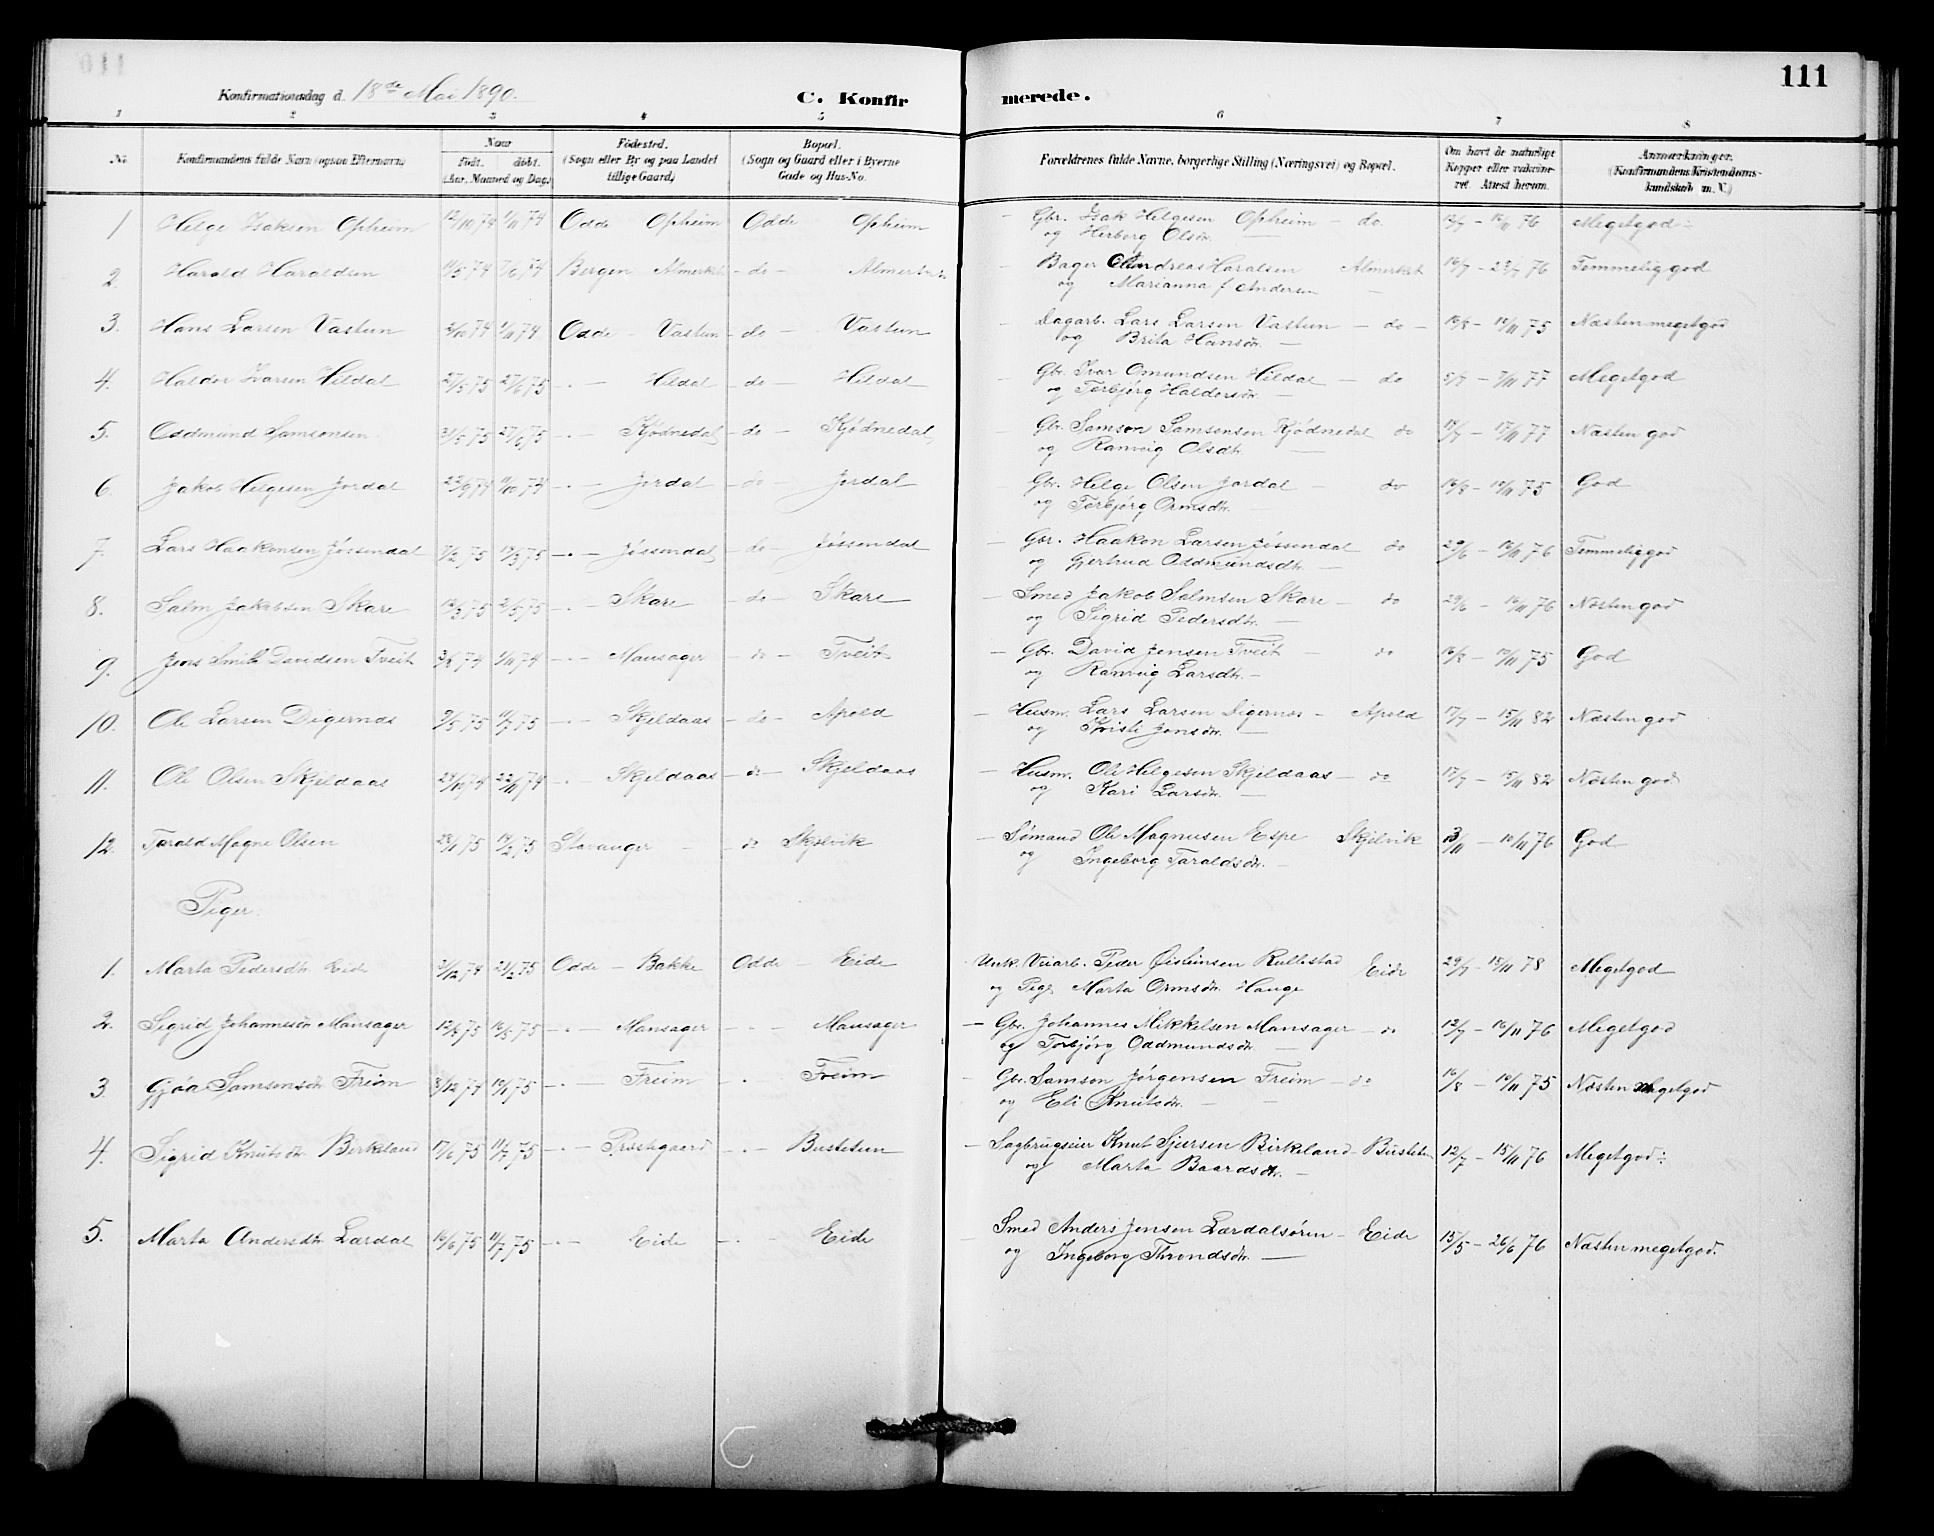 111
Konfirmationsdag d. 18de Mai 1890.
C. Konfirmerede.
1 2 3 4 5 6 7 8
No. Konfirmandens fulde Navn (ogsaa Efternavn) Naar født. døbt. (Aar, Maaned og Dag.) Födested. (Sogn eller By og paa Landet tillige Gaard.) Bopæl. (Sogn og Gaard eller i Byerne Gade og Hus-No. Forældrenes fulde Navne, borgerlige Stilling (Næringsvei) og Bopæl. Om havt de naturlige Kopper eller vaccineret. Attest herom. Anmærkninger. (Konfirmandens Kristendomskundskab m. V.)
1 Helge Isaksen Opheim 12/10 74 1/11 74 Odde Opheim Odde Opheim – Gbr. Isak Helgesen Opheim – do. 12/7 – 10/11 76 Megetgod÷
og Herborg Olsdtr. —
2. Harald Haraldsen 14/5 74 7/6 74 Bergen Almerket – do – Almerket – Bager Andreas Haralsen Almerket 16/7 – 23/7 76 Temmelig god
og Marianna f. Andersen –
3. Hans Larsen Vastun 2/10 74 1/11 74 Odde – Vastun – do – Vastun – Dagarb. Lars Larsen Vastun – do – 16/8 – 10/11 75 Næsten megetgod
og Brita Hansdtr. —
4. Halder Ivarsen Hildal 27/5 75 27/6 75 –·– Hildal – do – Hildal – Gbr. Ivar Omundsen Hildal – do 5/7 – 7/11 77 Megetgod
og Torbjørg Haldersdtr. —
5. Oddmund Samsonsen 31/5 75 27/6 75 –·– Kjødnedal – do – Kjødnedal – Gbr. Samson Samsonsen Kjødnedal do 17/7 – 15/11 77 Næsten god
og Ranveig Olsdtr. —
6. Jakob Helgesen Jordal 22/9 74 11/10 74 –·– Jordal – do – Jordal – Gbr. Helge Olsen Jordal – do 16/8 – 10/11 75 God
og Torbjørg Ormsdtr. —
7. Lars Haakonsen Jøssendal 7/2 75 19/3 75 –·– Jøssendal – do – Jøssendal – Gbr. Haakon Larsen Jøssendal do 29/6 – 16/11 76 Temmelig god
og Gjertrud Oddmundsdtr. —
8. Salm Jakobsen Skare 12/3 75 2/5 75 –·– Skare – do – Skare – Smed Jakob Salmsen Skare – do 29/6 – 16/11 76 Næsten god
og Sigrid Pedersdtr. —
9. Jens Smith Davidsen Tveit 3/8 74 1/11 74 –·– Mansager – do – Tveit – Gbr. David Jensen Tveit – do 16/8 – 10/11 75 God
og Ranveig Larsdtr. –
10. Ole Larsen Digernæs 9/5 75 11/7 75 –·– Skjeldaas – do – Apold – Husm. Lars Larsen Digernæs – Apold 17/7 – 15/11 82 Næsten god
og Kristi Jonsdtr. —
11. Ole Olsen Skjeldaas 28/10 74 22/11 74 –·– Skjeldaas – do – Skjeldaas – Husm. Ole Helgesen Skjeldaas – do 17/7 – 15/11 82 Næsten god
og Kari Larsdtr. —
12. Tarald Magne Olsen 28/1 75 14/2 75 Stavanger – – do Skjelvik – Sømand Ole Magnusen Espe Skjelvik – 10/11 76 God
og Ingeborg Taraldsdtr. —
Piger.
1. Marta Pedersdtr. Eide 31/12 74 21/2 75 Odde – Bakke Odde – Eide Unk. Veiarb. Peder Øisteinsen Rullestad Eide 29/7 – 15/11 78 Megetgod
og Pige Marta Ormsdtr. Hauge
2. Sigrid Johannesdtr. Mansager 12/4 75 16/5 75 –·– Mansager –·– Mansager – Gbr. Johannes Mikkelsen Mansager – do 12/7 – 16/11 76 Megetgod
og Torbjørg Oddmundsdtr. —
3. Gjøa Samsonsdtr. Freim 8/12 74 10/1 75 –·– Freim –·– Freim – Gbr. Samson Jørgensen Freim – do 16/8 – 10/11 75 Næsten Megetgod
og Eli Knutsdtr. —
4. Sigrid Knutsdtr. Birkeland 17/6 75 11/7 75 –·– Præstegaard –·– Bustetun – Sagbrugseier Knut Sjursen Birkeland – Bustetun 12/7 – 15/11 76 Megetgod÷
og Marta Baardsdtr. –
5. Marta Andersdtr. Lærdal 16/6 75 11/7 75 –·– Eide –·– Eide – Smed Anders Jensen Lærdalsøren – Eide 15/5 – 26/6 76 Næsten megetgod.
og Ingeborg Throndsdtr. —